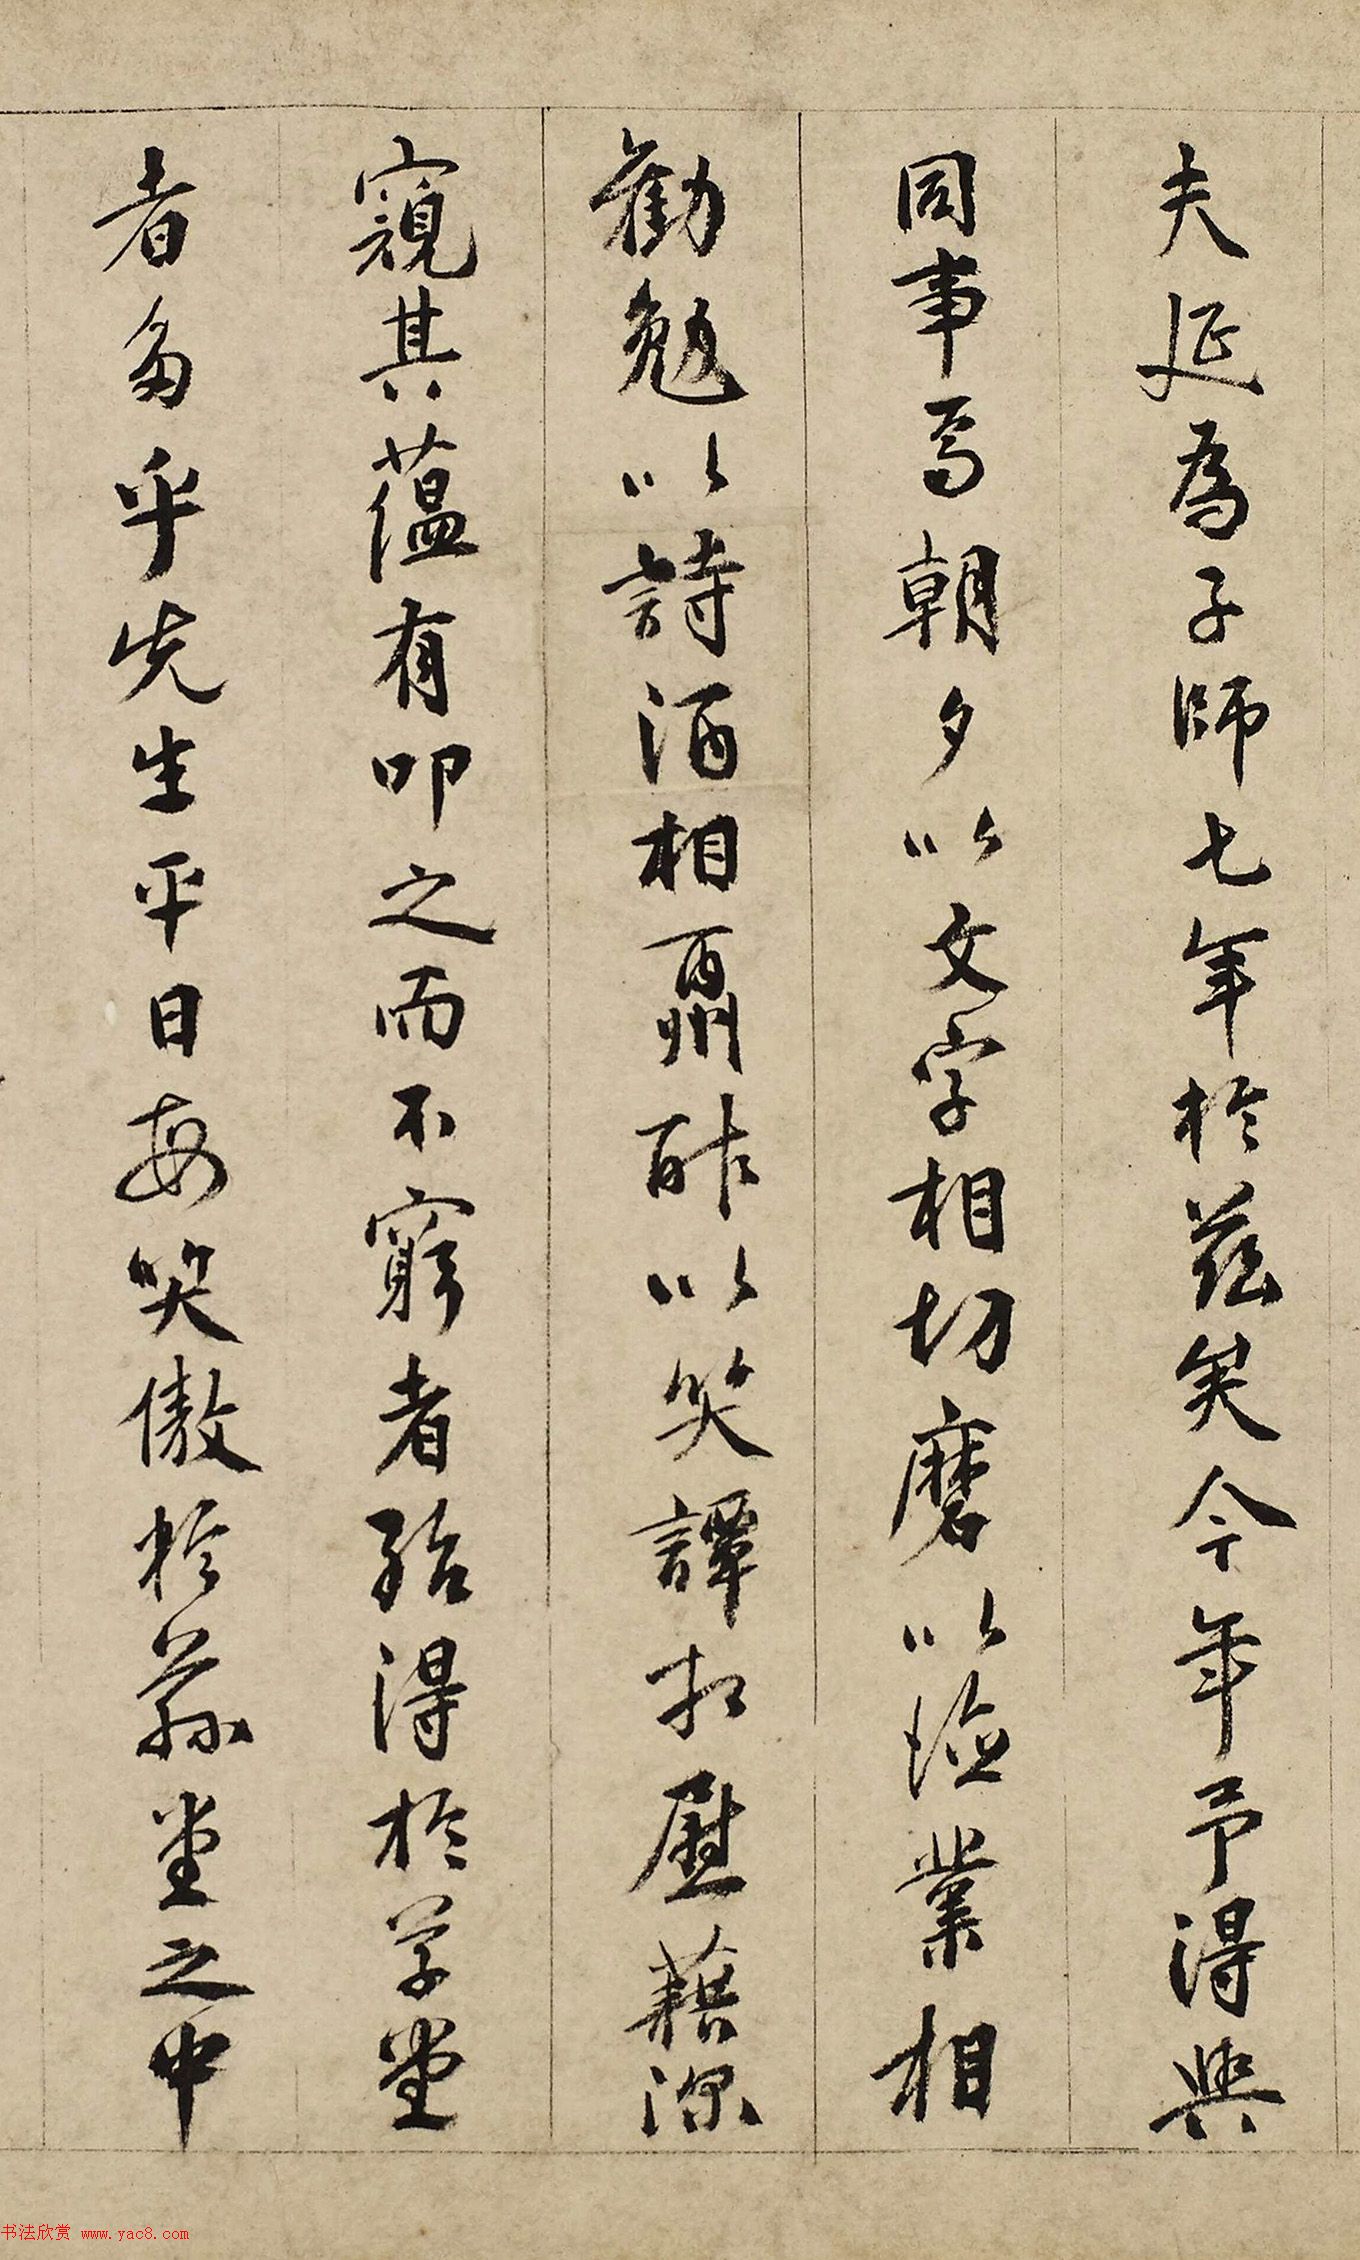 夫延爲子師七年於茲矣今年予得與
同事焉朝夕以文字相切磨以儉業相
勸勉以詩酒相酬酢以笑譚相慰藉深
窺其蘊有叩之而不窮者殆得於學堂
者多乎先生平日每笑傲於蘇堂之中
书法欣赏 www.yac8.com